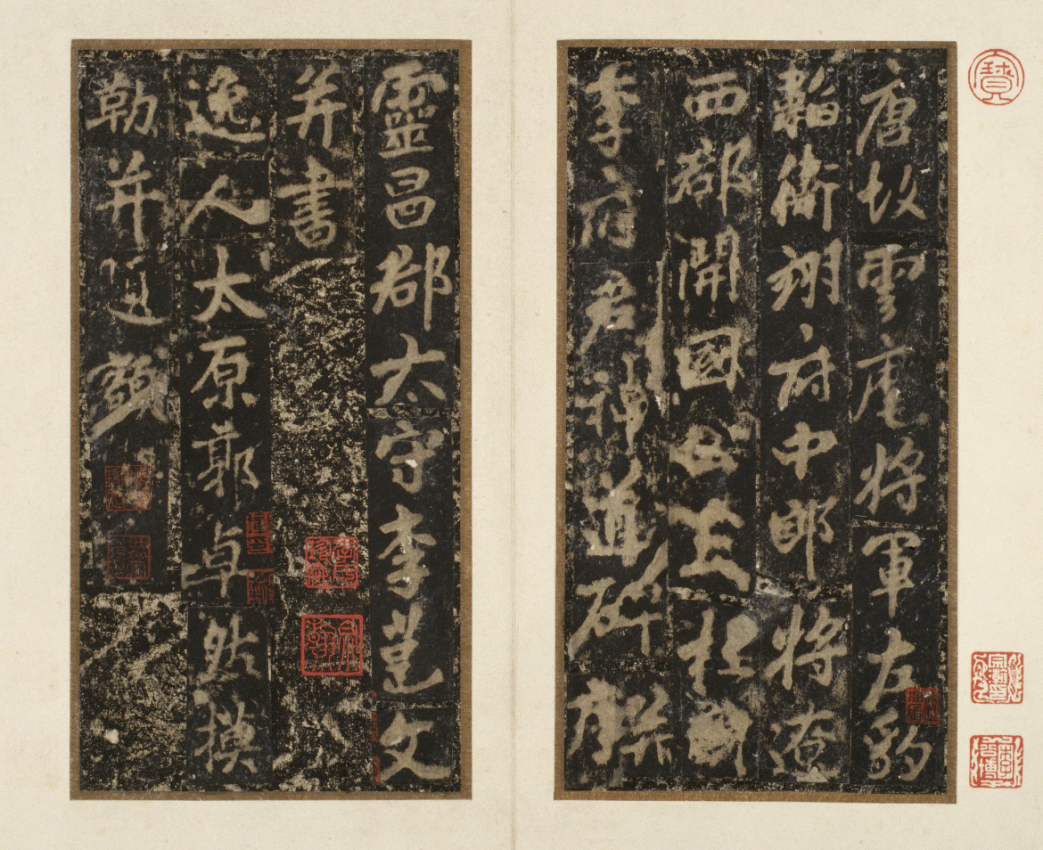 唐故雲麾將軍左豹
韜衛翊府中郎將遼
西郡開國公上柱國
李府君神道碑并序
靈昌郡太守李邕文
并書
逸人太原郭卓然摸
勒并題額